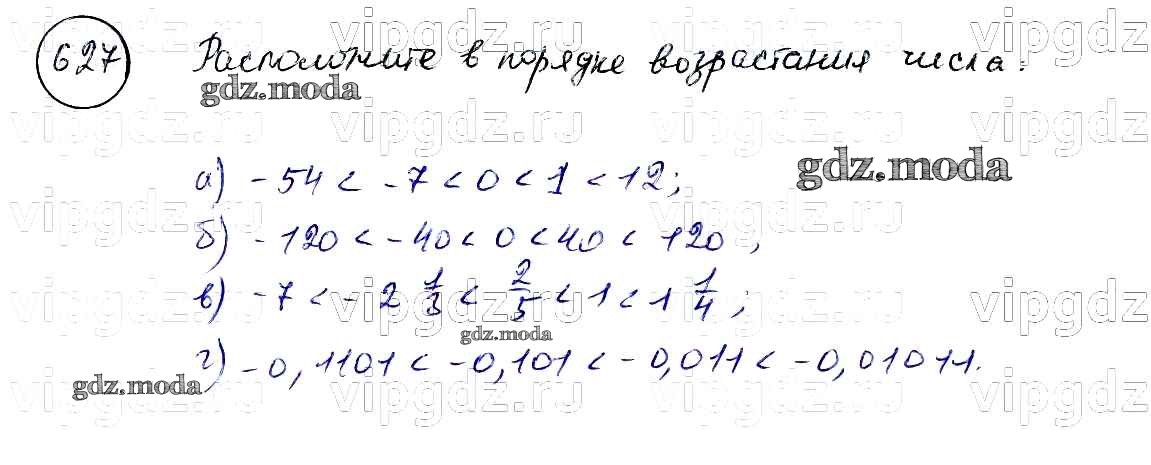 627 Расположите в порядке возрастания числа:
gdz.moda
а) -54 < -7 < 0 < 1 < 12;
gdz.moda
б) -120 < -40 < 0 < 40 < 120;
в) -7 < -2 1/3 < 2/5 < 1 < 1 1/4;
gdz.moda
г) -0,1101 < -0,101 < -0,011 < -0,01011.
gdz.moda
vipgdz.ru vipgdz.ru vipgdz.ru vipgdz
vipgdz.ru vipgdz.ru vipgdz.ru vipgdz
vipgdz.ru vipgdz.ru vipgdz.ru vipgdz
vipgdz.ru vipgdz.ru vipgdz.ru vipgdz
vipgdz.ru vipgdz.ru vipgdz.ru vipgdz